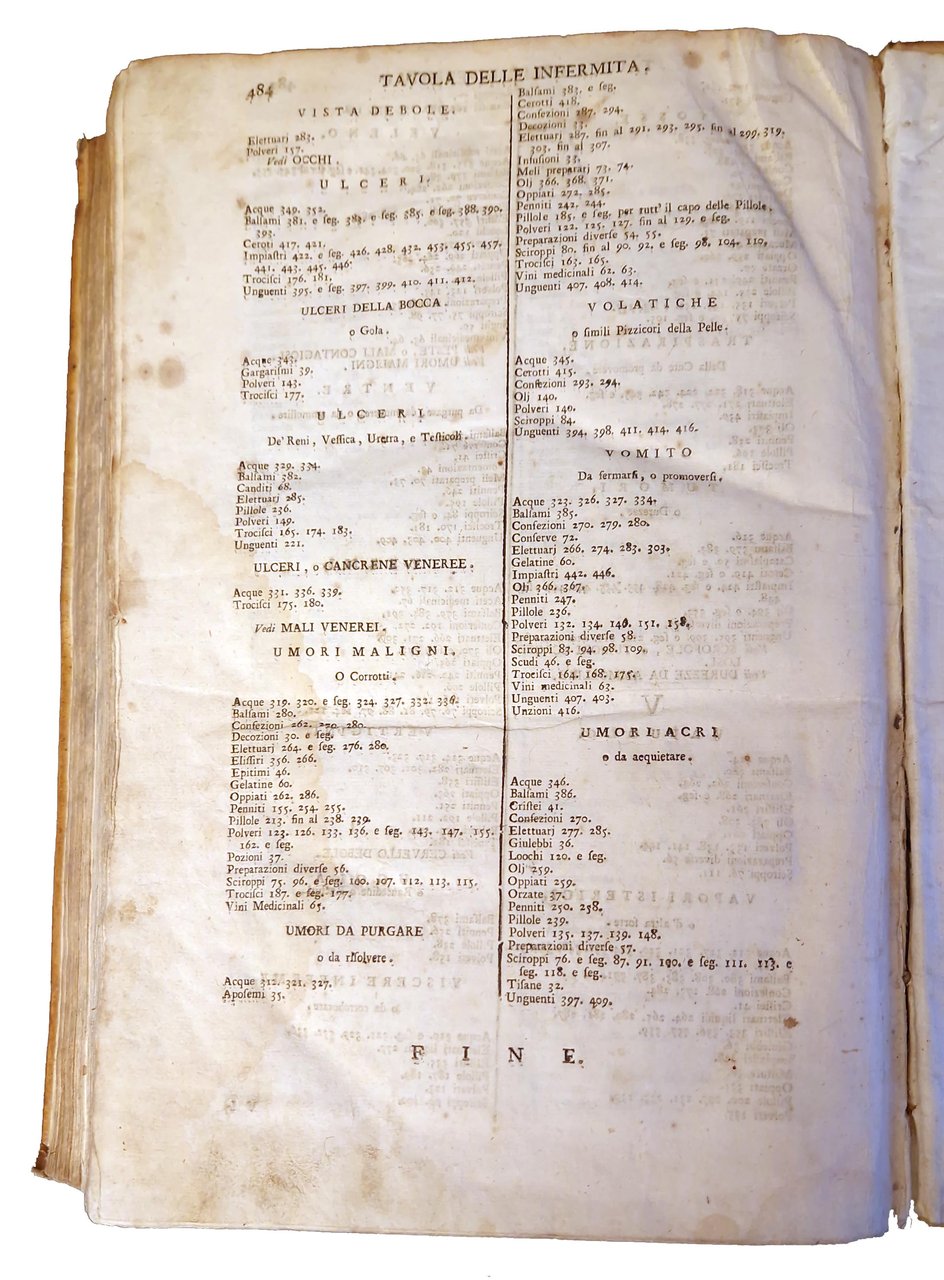 484
TAVOLA DELLE INFERMITA.
VISTA DEBOLE.
Elettuari 283.
Polveri 157.
Vedi OCCHI.
ULCERI.
Acque 349. 352.
Balsami 381. e seg. 383. e seg. 385. e seg. 388. 390.
393.
Ceroti 417. 421.
Impiastri 422. e seg. 426. 428. 432. 453. 455. 457.
441. 443. 445. 446.
Trocisci 176. 181.
Unguenti 395. e seg. 397. 399. 410. 411. 412.
ULCERI DELLA BOCCA.
o Gola.
Acque 343.
Gargarismi 39.
Polveri 143.
Trocisci 177.
ULCERI
De' Reni, Vessica, Uretra, e Testicoli.
Acque 329. 334.
Balsami 382.
Canditi 68.
Elettuari 285.
Pillole 236.
Polveri 149.
Trocisci 165. 174. 183.
Unguenti 221.
ULCERI, o CANCRENE VENEREE.
Acque 331. 336. 339.
Trocisci 175. 180.
Vedi MALI VENEREI.
UMORI MALIGNI.
O Corrotti.
Acque 319. 320. e seg. 324. 327. 332. 336.
Balsami 280.
Confezioni 262. 270. 280.
Decozioni 30. e seg.
Elettuari 264. e seg. 276. 280.
Elissiri 356. 266.
Epitimi 46.
Gelatine 60.
Oppiati 262. 286.
Penniti 155. 254. 255.
Pillole 213. fin al 238. 239.
Polveri 123. 126. 133. 136. e seg. 143. 147. 155.
162. e seg.
Pozioni 37.
Preparazioni diverse 56.
Sciroppi 75. 96. e seg. 100. 107. 112. 113. 115.
Trocisci 187. e seg. 177.
Vini Medicinali 65.
UMORI DA PURGARE
o da risolvere.
Acque 312. 321. 327.
Aposemi 35.
Balsami 383. e seg.
Cerotti 418.
Confezioni 287. 294.
Decozioni 33.
Elettuari 287. fin al 291. 293. 295. fin al 299. 319.
303. fin al 307.
Infusioni 33.
Meli preparatj 73. 74.
Olj 366. 368. 371.
Oppiati 272. 285.
Penniti 242. 244.
Pillole 185. e seg. per tutt' il capo delle Pillole.
Polveri 122. 125. 127. fin al 129. e seg.
Preparazioni diverse 54. 55.
Sciroppi 80. fin al 90. 92. e seg. 98. 104. 110.
Trocisci 163. 165.
Vini medicinali 62. 63.
Unguenti 407. 408. 414.
VOLATICHE
o simili Pizzicori della Pelle.
Acque 345.
Cerotti 415.
Confezioni 293. 294.
Olj 140.
Polveri 140.
Sciroppi 84.
Unguenti 394. 398. 411. 414. 416.
VOMITO
Da fermarsi, o promoversi.
Acque 323. 326. 327. 334.
Balsami 385.
Confezioni 270. 279. 280.
Conserve 72.
Elettuarj 266. 274. 283. 303.
Gelatine 60.
Impiastri 442. 446.
Olj 366. 367.
Penniti 247.
Pillole 236.
Polveri 132. 134. 140. 151. 158.
Preparazioni diverse 58.
Sciroppi 83. 94. 98. 109.
Scudi 46. e seg.
Trocisci 164. 168. 175.
Vini medicinali 63.
Unguenti 407. 403.
Unzioni 416.
UMORI ACRI
o da acquietare.
Acque 346.
Balsami 386.
Cristei 41.
Confezioni 270.
Elettuarj 277. 285.
Giulebbi 36.
Loochi 120. e seg.
Olj 259.
Oppiati 259.
Orzate 37.
Penniti 250. 258.
Pillole 239.
Polveri 135. 137. 139. 148.
Preparazioni diverse 57.
Sciroppi 76. e seg. 87. 91. 100. e seg. 111. 113. e
seg. 118. e seg.
Tisane 32.
Unguenti 397. 409.
FINE.